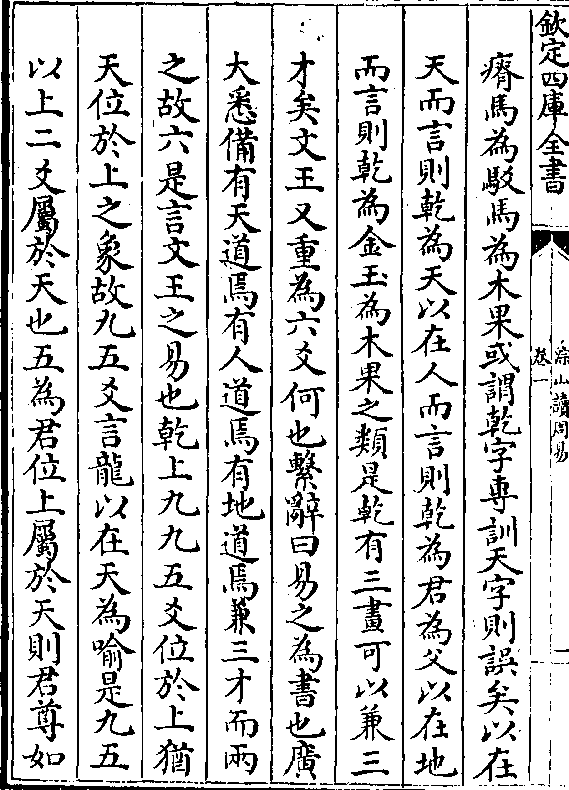 欽定四庫全書
淙山讀周易
卷一
瘠馬為駁馬為木果或謂乾字專訓天字則誤矣以在
天而言則乾為天以在人而言則乾為君為父以在地
而言則乾為金玉為木果之類是乾有三畫可以兼三
才矣文王又重為六爻何也繫辭曰易之為書也廣
大悉備有天道焉有人道焉有地道焉兼三才而兩
之故六是言文王之易也乾上九九五爻位於上猶
天位於上之象故九五爻言龍以在天為喻是九五
以上二爻屬於天也五為君位上屬於天則君尊如